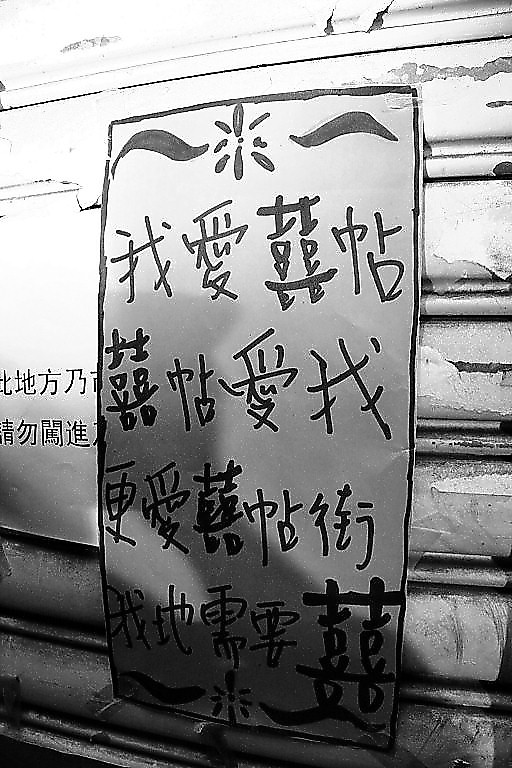 我愛囍帖
囍帖愛我
更愛囍帖街
我地需要囍
此地方乃
請勿闖進